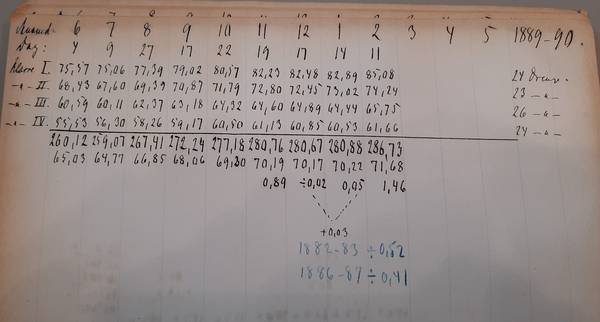 Maaned: 6 7 8 9 10 11 12 1 2 3 4 5 1889-90.
Dag: 4 9 27 17 22 19 17 14 11
Klasse I. 75,57 75,06 77,39 79,02 80,57 82,23 82,48 82,89 85,08 24 Drenge.
-"- II. 68,43 67,60 69,39 70,87 71,79 72,80 72,45 73,02 74,24 23 -"-
-"- III. 60,59 60,11 62,37 63,18 64,32 64,60 64,89 64,44 65,75 26 -"-
-"- IV. 55,53 56,30 58,26 59,17 60,50 61,13 60,85 60,53 61,66 24 -"-
260,12 259,07 267,41 272,24 277,18 280,76 280,67 280,88 286,73
65,03 64,77 66,85 68,06 69,30 70,19 70,17 70,22 71,68
0,89 ÷0,02 0,05 1,46
+0,03
1882-83 ÷0,52
1886-87 ÷0,41